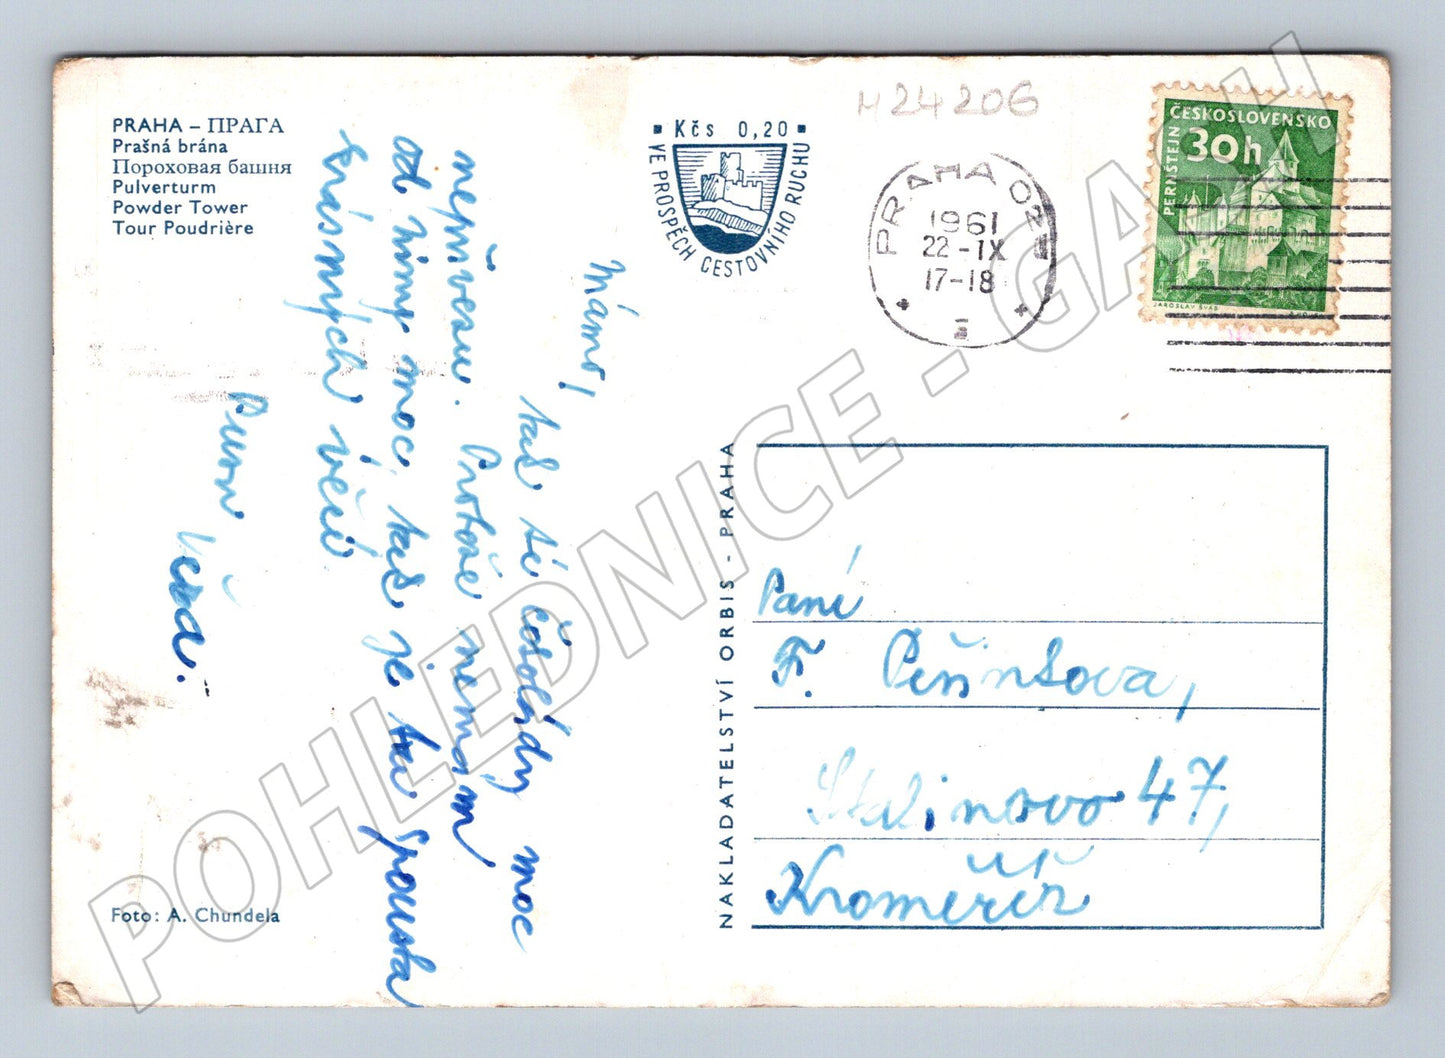 PRAHA – ПРАГА
Prašná brána
Пороховая башня
Pulverturm
Powder Tower
Tour Poudrière
Kčs 0,20
VE PROSPĚCH CESTOVNÍHO RUCHU
H24206
PRAHA 025
1961
22-IX
17-18
ČESKOSLOVENSKO
30h
PERNŠTEJN
JAROSLAV ŠVÁB
Mámo,
tak té čokolády moc
nepřivezu. Protože nemám
od Mimy moc, tak je tu spousta
krásných věcí
Pusu
Věra.
NAKLADATELSTVÍ ORBIS - PRAHA
Paní
F. Peřinková,
Stalinova 47,
Kroměříž
Foto: A. Chundela
POHLEDNICE - GASH